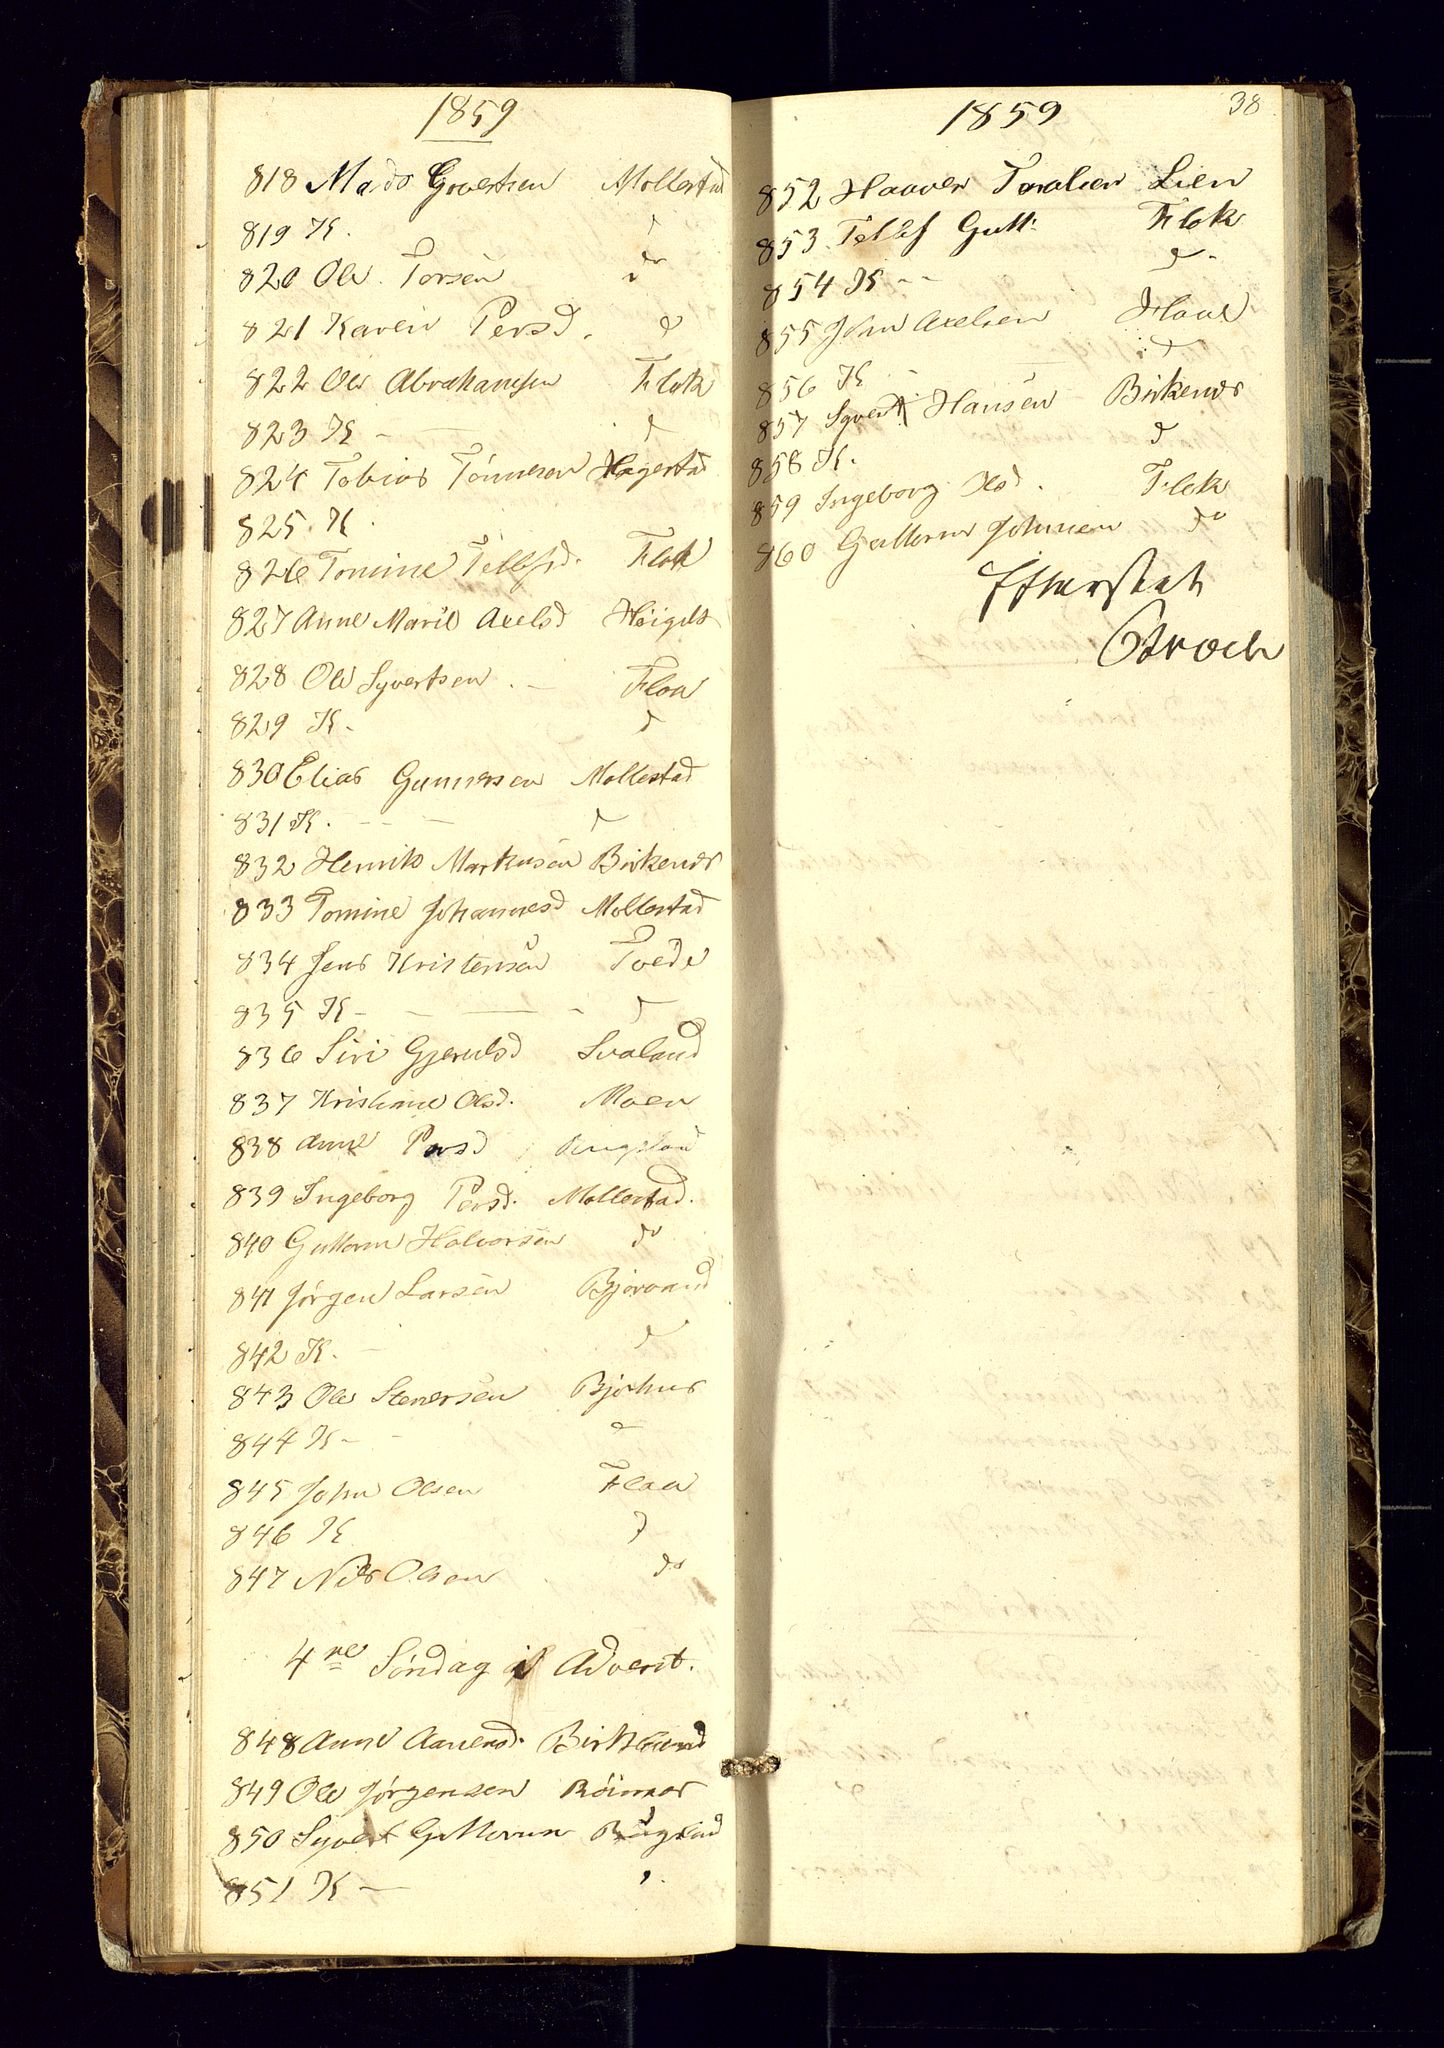 1859
818 Mads Govertsen Mollestad
819 K. d
820 Ole Torsen do
821 Karen Persd. d
822 Ole Abrahamsen Flak
823 K - d
824 Tobias Tønnesen Hagestad
825 K.
826 Tomine Tellefsd. Flak
827 Anne Marie Axelsd
828 Ole Syvertsen - Flaa
829 K - d
830 Elias Gunnersen Mollestad
831 K. - - - d
832 Henrik Markusen Birkenes
833 Tomine Johannesd Mollestad
834 Jens Kristensen Tvede
835 K - - - - d
836 Siri Gjerulsd Svaland
837 Kristiane Olsd. Moen
838 Anne Persd Rugslad
839 Ingeborg Persd. Mollestad.
840 Guttorm Halvorsen do
841 Jørgen Larsen Bjorvand
842 K. - d
843 Ole Stenersen Bjorhus
844 K - - d
845 John Olsen Flaa
846 K d
847 Nils Olsen do
4de Søndag i Advent.
848 Anne Aanensd. Birkeland
849 Ole Jørgensen Røinaas
850 Syvert Guttormsen Rugslad
851 K -
1859
38
852 Haaver Teralsen Lien
853 Tellef Gutt: Flak
854 K - - d -
855 John Axelsen
856 K - d
857 Syvert Hansen Birkenes
858 K. d
859 Ingeborg Olsd. Flak
860 Guttorm Johnsen do
Efterseet
Broch